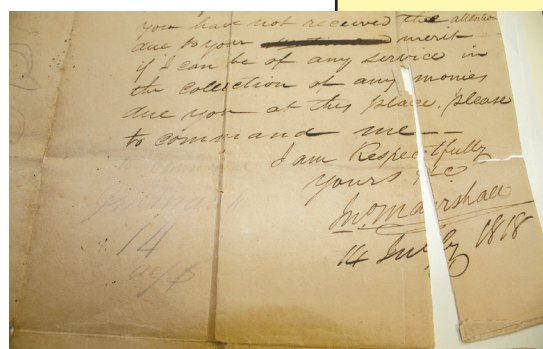 you have not received the attention
due to your merit –
if I can be of any service in
the collection of any monies
due you at this place, please
to command me –
I am Respectfully
yours &c
Jno Marshall
14 July 1818
14